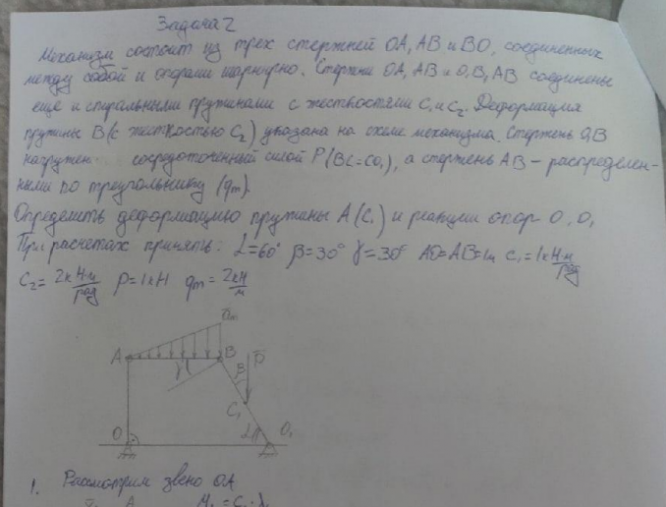 Задача 2
Механизм состоит из трех стержней OA, AB и BO, соединенных
между собой и опорами шарнирно. Стержни OA, AB и O₁B, AB соединены
еще и спиральными пружинами с жесткостями C₁ и C₂. Деформация
пружины B (с жесткостью C₂) указана на схеме механизма. Стержень O₁B
нагружен сосредоточенный силой P (BC₁=CO₁), а стержень AB - распределен-
ными по треугольнику (qm).
Определить деформацию пружины A (C₁) и реакции опор O, O₁
При расчетах принять: L=60° β=30° γ=30° AO=AB=1м C₁=1кН·м/рад
C₂=2кН·м/рад P=1кН qm=2кН/м
qm
A B P
γ β
C₁
O L O₁
1. Рассмотрим звено OA
A M₁=C₁·λ₁